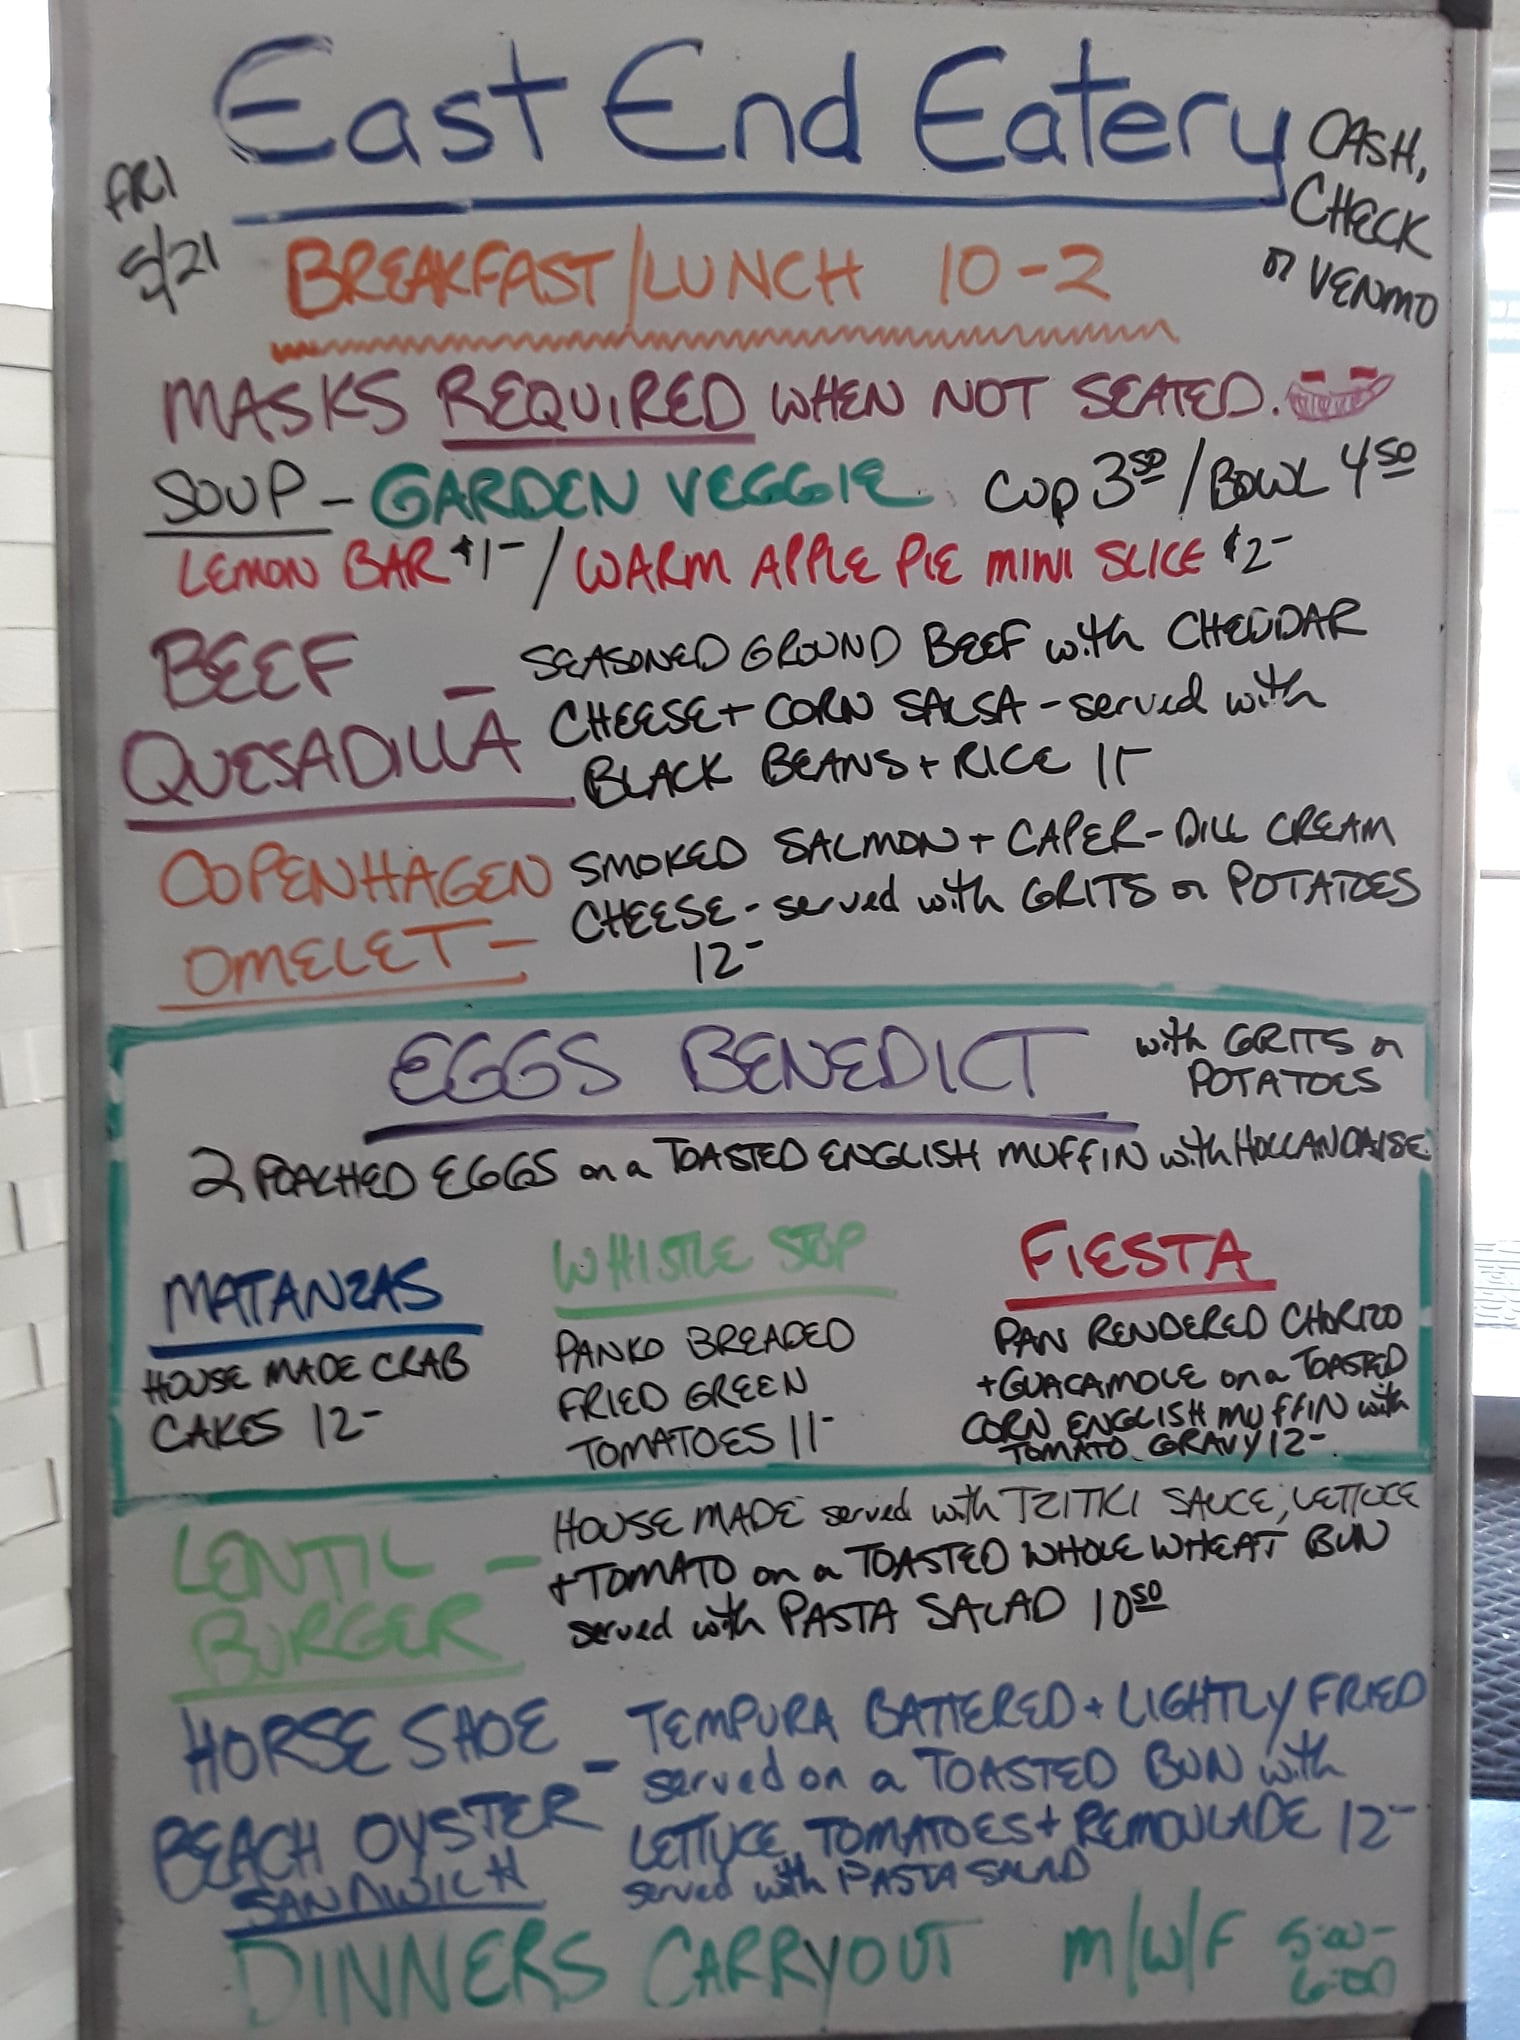 East End Eatery
FRI
5/21
CASH,
CHECK
or VENMO
BREAKFAST/LUNCH 10-2
MASKS REQUIRED WHEN NOT SEATED.
SOUP - GARDEN VEGGIE CUP 3 50 / BOWL 4 50
LEMON BAR $1- / WARM APPLE PIE MINI SLICE $2-
BEEF
QUESADILLA -
SEASONED GROUND BEEF with CHEDDAR
CHEESE + CORN SALSA - served with
BLACK BEANS + RICE 11-
COPENHAGEN
OMELET -
SMOKED SALMON + CAPER-DILL CREAM
CHEESE - served with GRITS or POTATOES
12-
EGGS BENEDICT
with GRITS or
POTATOES
2 POACHED EGGS on a TOASTED ENGLISH MUFFIN with HOLLANDAISE.
MATANZAS
HOUSE MADE CRAB
CAKES 12-
WHISTLE STOP
PANKO BREADED
FRIED GREEN
TOMATOES 11-
FIESTA
PAN RENDERED CHORIZO
+ GUACAMOLE on a TOASTED
CORN ENGLISH MUFFIN with
TOMATO GRAVY 12-
LENTIL
BURGER -
HOUSE MADE served with TZITKI SAUCE, LETTUCE
+ TOMATO on a TOASTED WHOLE WHEAT BUN
served with PASTA SALAD 10 50
HORSE SHOE
BEACH OYSTER
SANDWICH -
TEMPURA BATTERED + LIGHTLY FRIED
served on a TOASTED BUN with
LETTUCE, TOMATOES + REMOULADE 12-
served with PASTA SALAD
DINNERS CARRYOUT M/W/F 5:00-
6:00